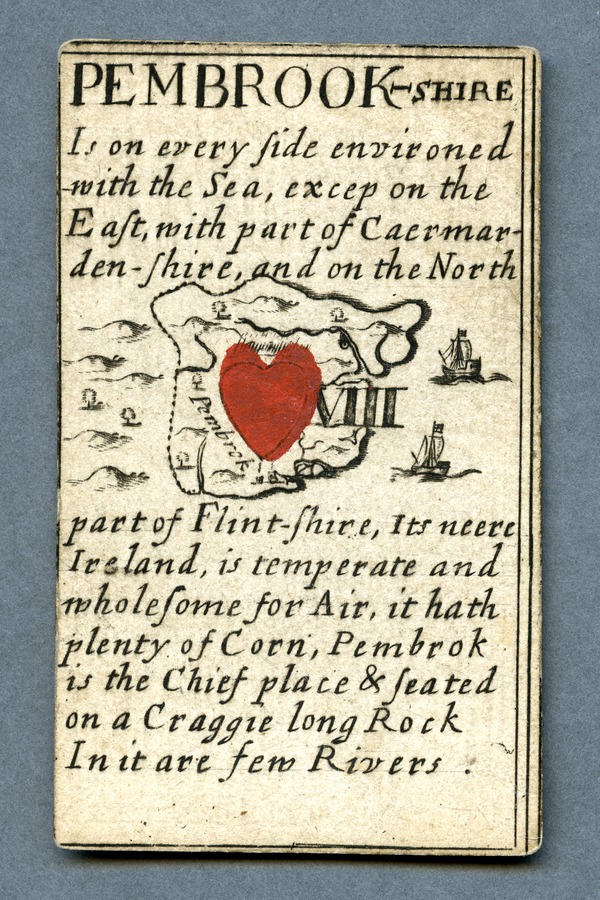 PEMBROOK-SHIRE
Is on every ſide environed
with the Sea, excep on the
Eaſt, with part of Caermar-
den-ſhire, and on the North
VIII
Pembrok
part of Flint-ſhire, Its neere
Ireland, is temperate and
wholeſome for Air, it hath
plenty of Corn, Pembrok
is the Chief place & ſeated
on a Craggie long Rock
In it are few Rivers .